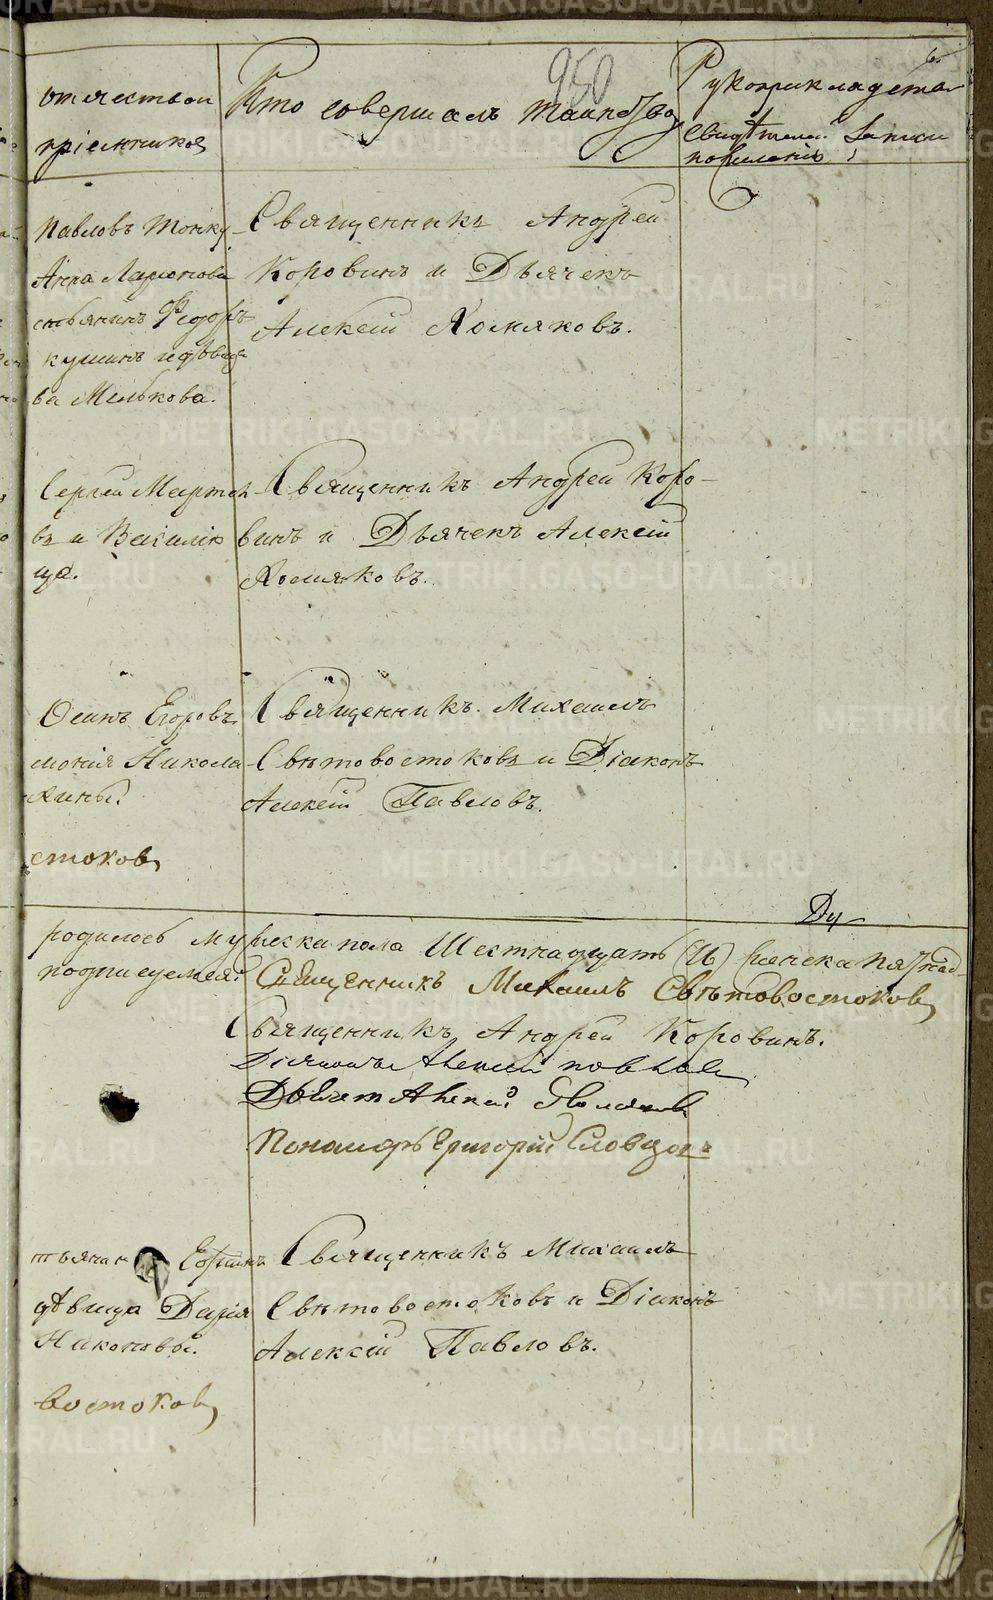 950
отчество и
пріемниковъ
Кто совершалъ таинство
Рукоприкладство
свидѣтелей записи
по желанію
Павловъ Тонку
Анна Ларионова
стьянинъ Федоръ
кушинъ и дѣвица
ва Мелькова.
Священникъ Андрей
Коровинъ и Дьячекъ
Алексѣй Хомяковъ.
Сергѣй Мартон
въ и Василис
ца.
Священникъ Андрей Коро-
винъ и Дьячекъ Алексѣй
Хомяковъ.
Осипъ Егоровъ
монія Никола
ихины.
Священникъ Михаилъ
Свѣтовостоковъ и Діаконъ
Алексѣй Павловъ.
стоковъ
Ду
родилось мужеска пола Шестнадцать (16) женска пятнад-
подписуемся: Священникъ Михаилъ Свѣтовостоковъ
Священникъ Андрей Коровинъ.
Діаконъ Алексей Павловъ
Дьячекъ Алексей Хомяковъ
Пономарь Григорій Словцовъ
тьянин Ефимъ
дѣвица Дарія
Никоновы.
Священникъ Михаилъ
Свѣтовостоковъ и Діаконъ
Алексѣй Павловъ.
востоковъ
METRIKI.GASO-URAL.RU